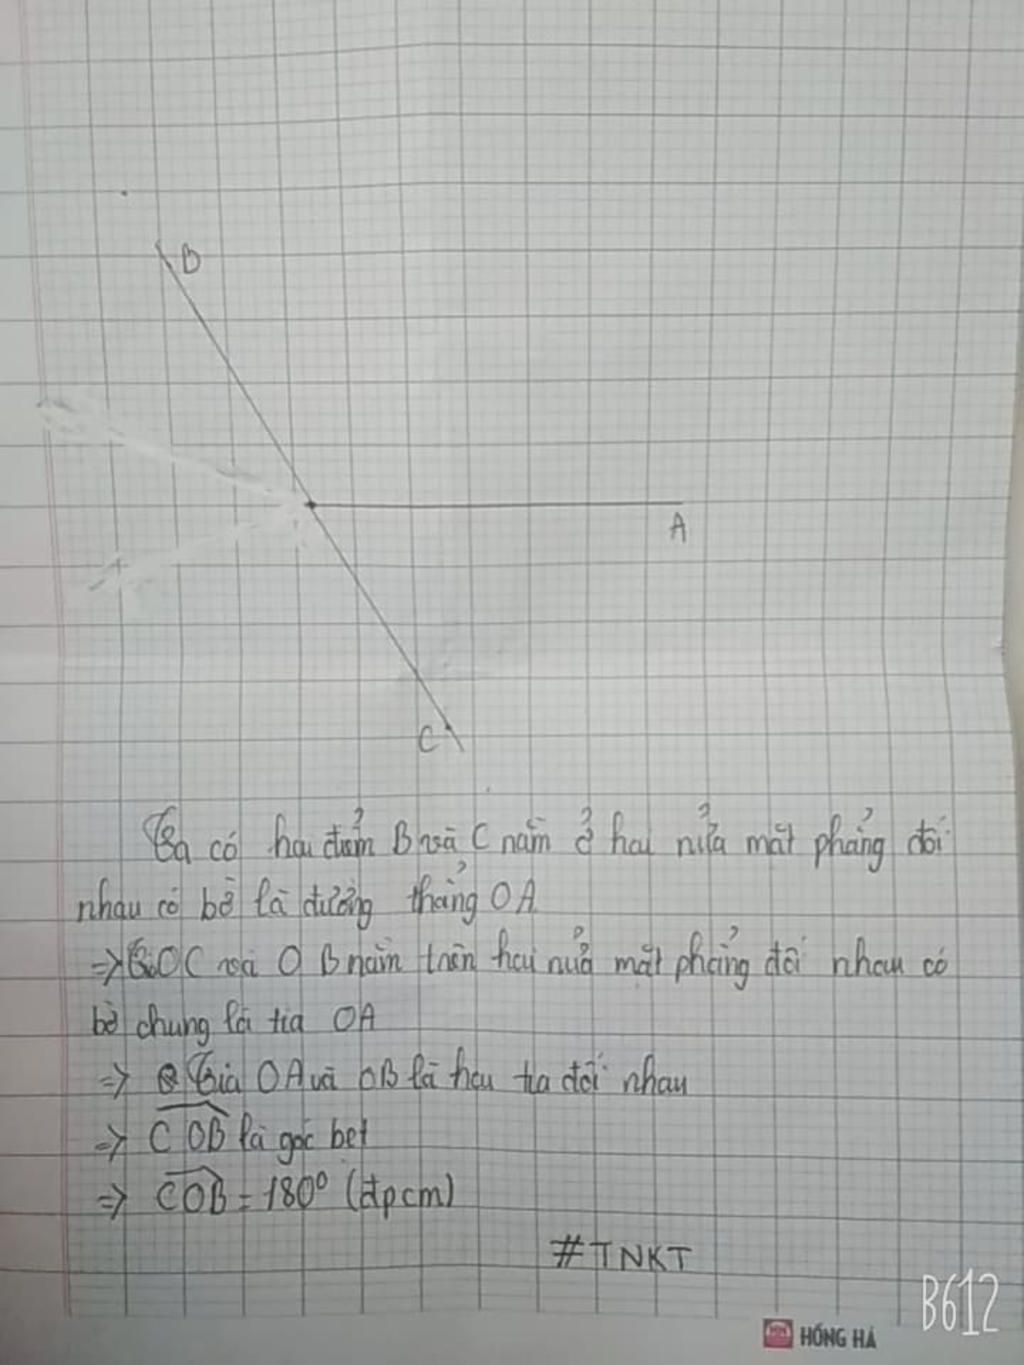 B
A
C
Ta có hai điểm B và C nằm ở hai nửa mặt phẳng đối
nhau có bờ là đường thẳng OA
=> OC và OB nằm trên hai nửa mặt phẳng đối nhau có
bờ chung là tia OA
=> Tia OA và OB là hai tia đối nhau
=> COB là góc bẹt
=> COB = 180° (đpcm)
#TNKT
B612
HỒNG HÀ